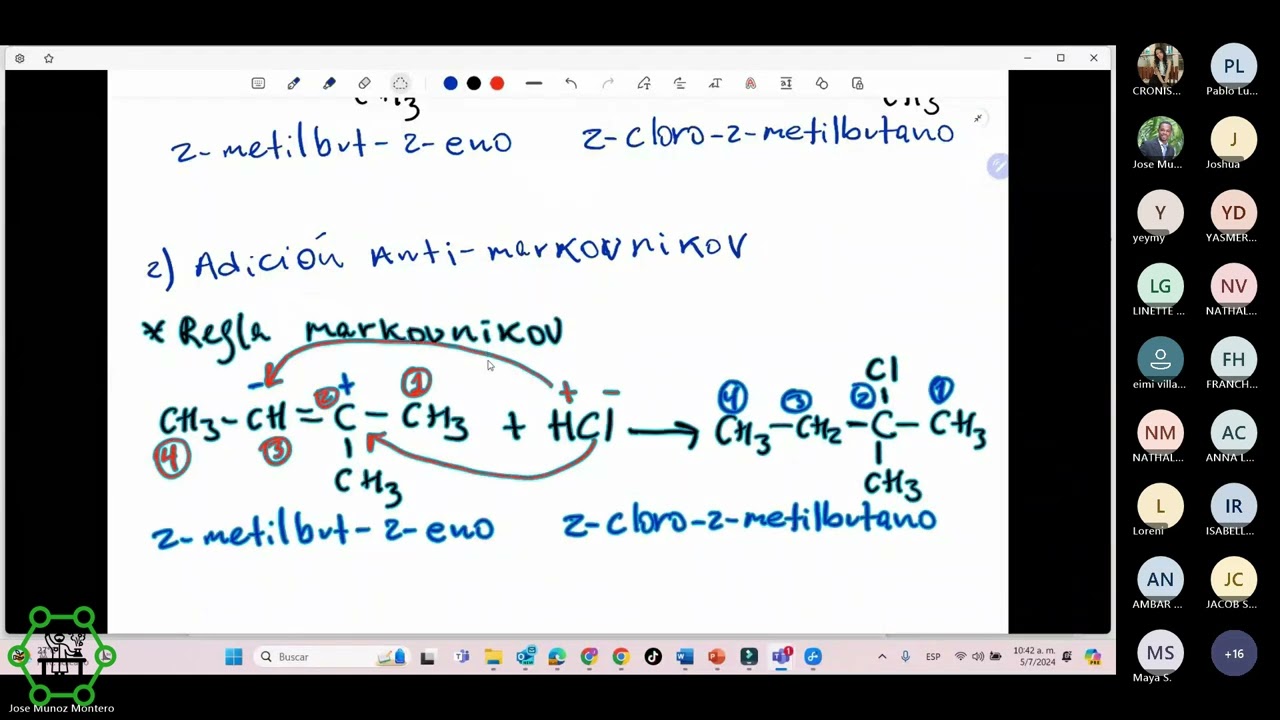 CH3
CH3
2-metilbut-2-eno
2-cloro-2-metilbutano
2) Adición Anti-markovnikov
* Regla markovnikov
- + + -
② ①
CH3-CH=C-CH3 + HCl →
④ ③
CH3
2-metilbut-2-eno
Cl
④ ③ ② ①
CH3-CH2-C-CH3
CH3
2-cloro-2-metilbutano
CRONIS...
PL
Pablo Lu...
Jose Mu...
J
Joshua
Y
yeymy
YD
YASMER...
LG
LINETTE ...
NV
NATHAL...
eimi villa...
FH
FRANCH...
NM
NATHAL...
AC
ANNA L...
L
Loreni
IR
ISABELL...
AN
AMBAR ...
JC
JACOB S...
MS
Maya S.
+16
Buscar
ESP
10:42 a. m.
5/7/2024
Jose Munoz Montero